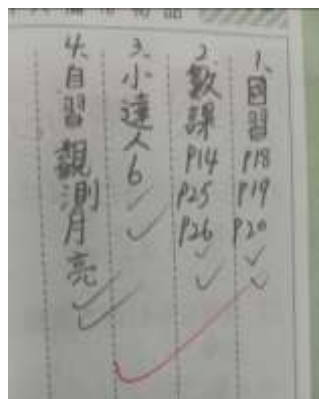 1、國習P18 P19 P20
2、數課P14 P25 P26
3、小達人6
4、自習觀測月亮